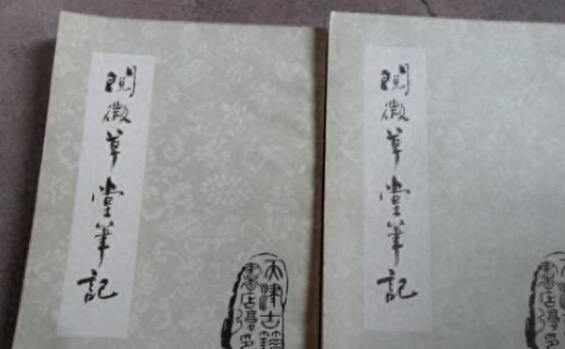 閱微草堂筆記
天津古籍
書店影印
閱微草堂筆記
天津古
書店影印